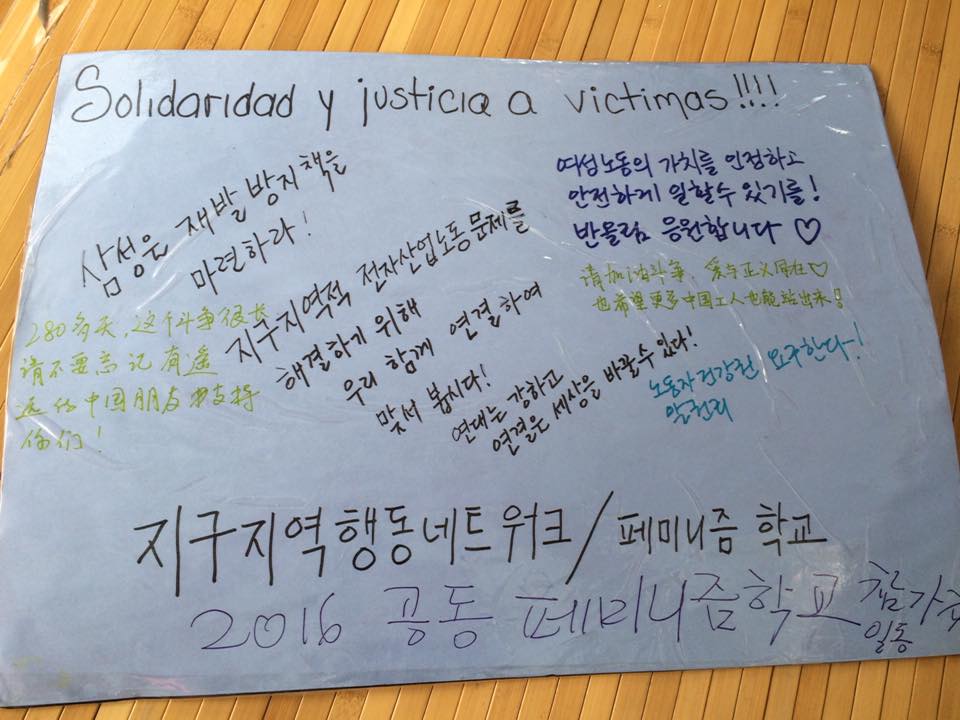 Solidaridad y justicia a victimas!!!!
삼성은 재발 방지책을
마련하라!
여성노동의 가치를 인정하고
안전하게 일할수 있기를!
반올림 응원합니다 ♡
지구지역적 전자산업노동문제를
해결하기 위해
우리 함께 연결하여
맞서 봅시다!
연대는 강하고
연결은 세상을 바꿀수 있다!
请加油斗争,爱与正义同在♡
也希望更多中国工人也能站出来!
280多天,这个斗争很长
请不要忘记有遥
远的中国朋友也支持
你们!
노동자건강권 요구한다!
지구지역행동네트워크/페미니즘 학교
2016 공동 페미니즘학교 참가
일동